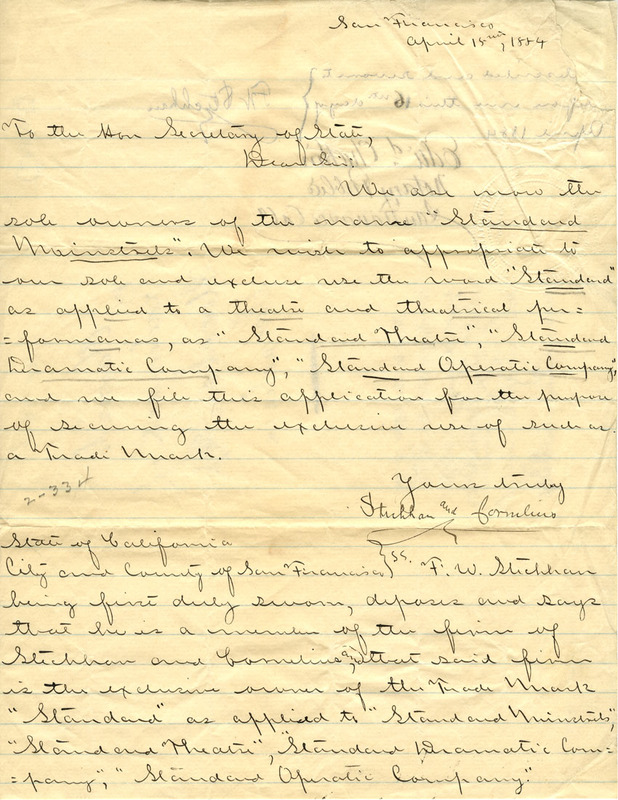 San Francisco
April 15th, 1884
To the Hon Secretary of State,
Dear Sir:
We are now the
sole owners of the name "Standard
Minstrels". We wish to appropriate to
our sole and excluse use the word "Standard"
as applied to a theatre and theatrical per=
=formances, as "Standard Theatre", "Standard
Dramatic Company", "Standard Operatic Company",
and we file this application for the purpose
of securing the exclusive use of such as
a Trade Mark.
2-334
Yours truly
Stichhan and Cornelius
State of California
City and County of San Francisco } ss. F. W. Stichhan
being first duly sworn, deposes and says
that he is a member of the firm of
Stichhan and Cornelius, that said firm
is the exclusive owner of the Trade Mark
"Standard" as applied to "Standard Minstrels",
"Standard Theatre", "Standard Dramatic Com=
=pany", "Standard Operatic Company"